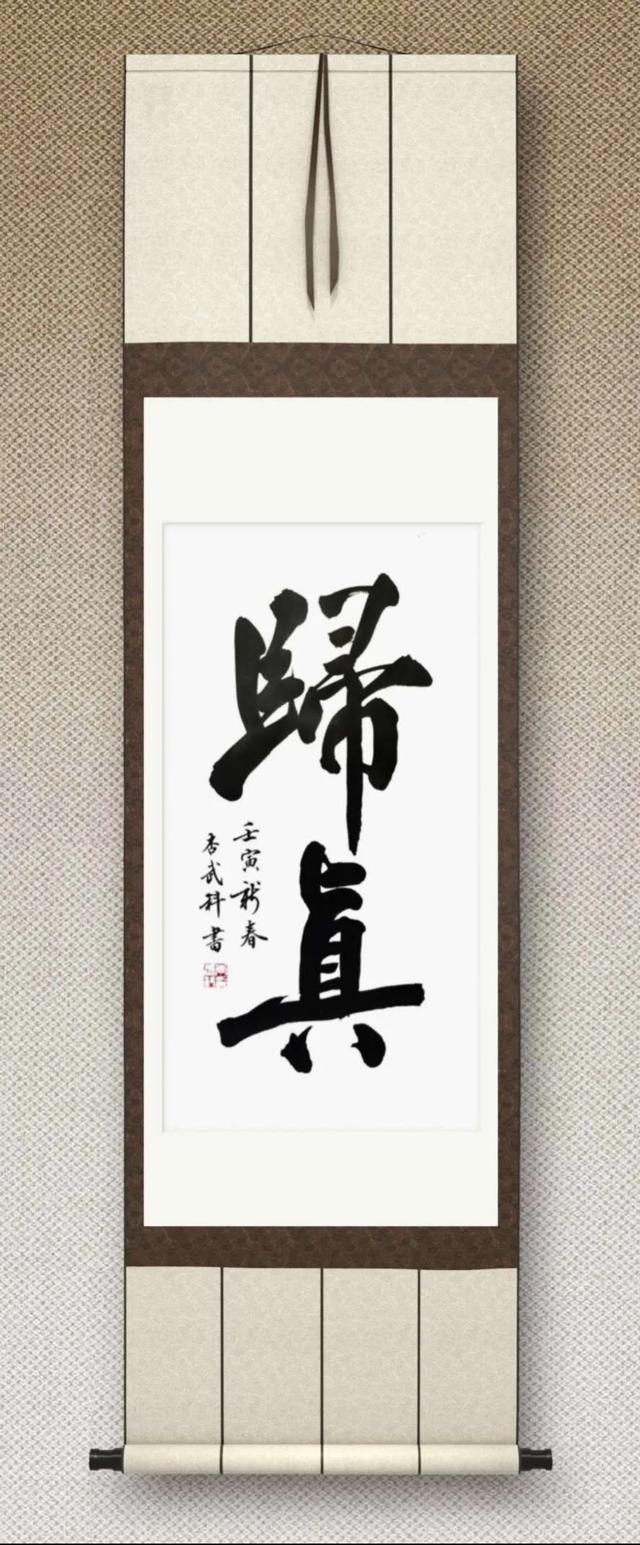 歸真
壬寅新春
武科書